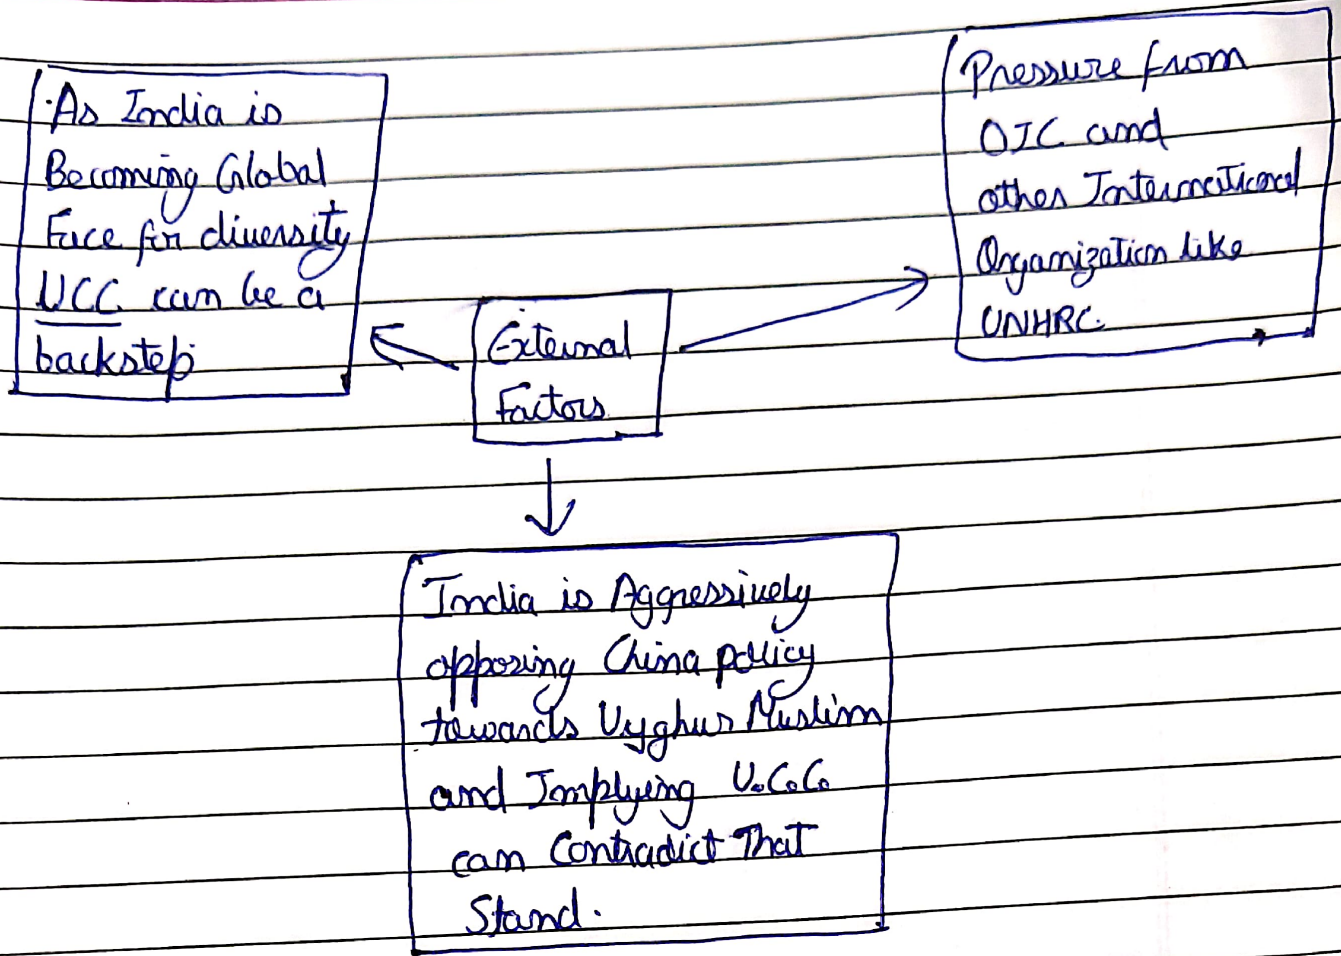 As India is
Becoming Global
Face for diversity
UCC can be a
backstep
Pressure from
OIC and
other International
Organization like
UNHRC
External
Factors
India is Aggressively
opposing China policy
towards Uyghur Muslim
and Implying U.C.C.
can Contradict That
Stand.